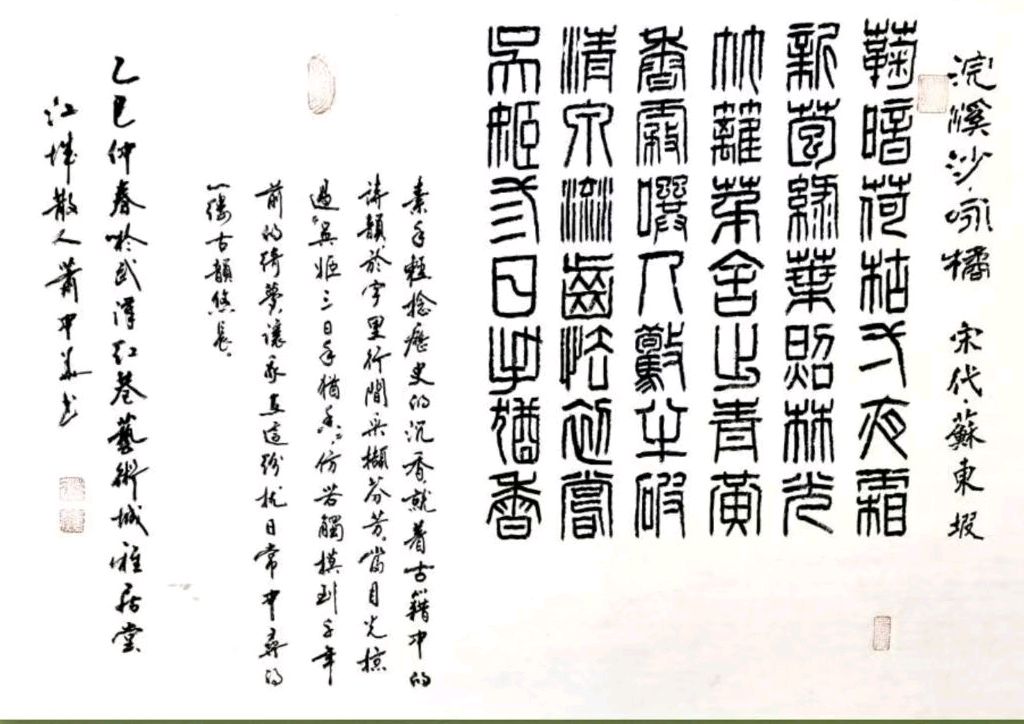 浣溪沙·咏橘 宋代 蘇東坡
鞠暗荷枯弌夜霜
新苞綠葉照林光
竹籬茅舍出青黃
香霧噀人驚半破
清泉流齒怯初嘗
吳姬弎日手猶香
素手輕捻歷史的沉香，就着古籍中的
詩韻於字里行間采擷芬芳。當目光掠
過“吳姬三日手猶香”，仿若觸摸到千年
前的綺夢，讓我在這紛擾日常中尋得
一縷古韻悠長。
乙巳仲春於武漢紅巷藝術城雅居堂
江城散人蕭中華书